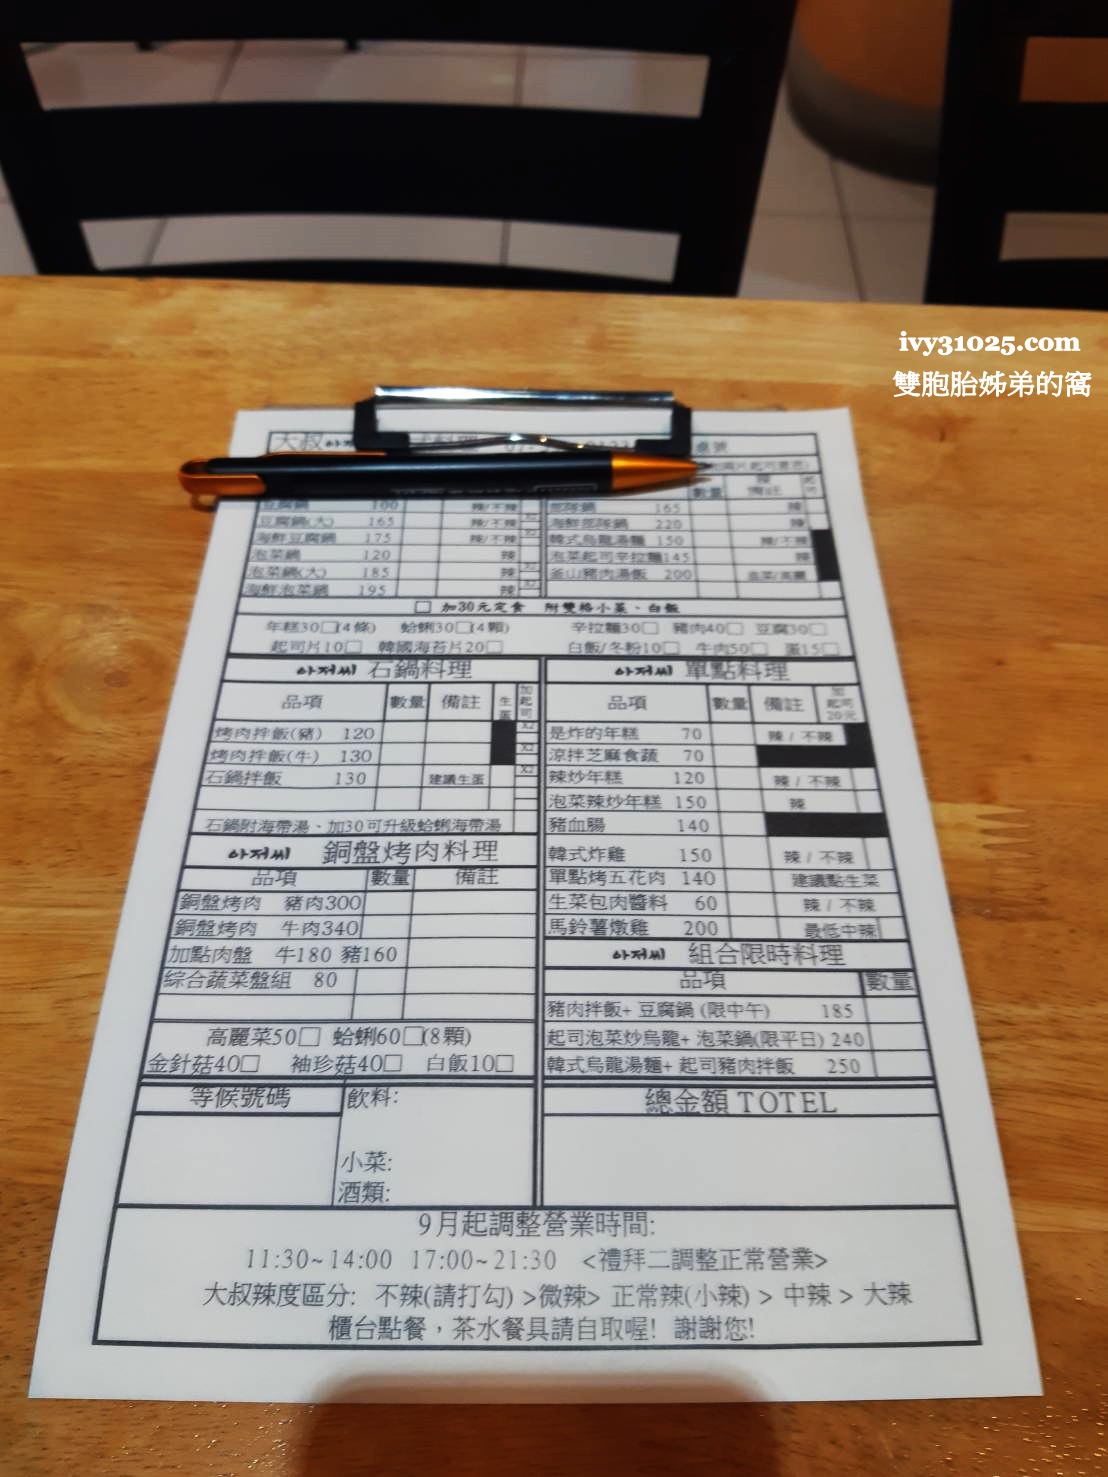 ivy31025.com
雙胞胎姊弟的窩
大叔
桌號
數量 備註
豆腐鍋 160 辣/不辣
豆腐鍋(大) 165 辣/不辣 X2
海鮮豆腐鍋 175 辣/不辣
泡菜鍋 120 辣
泡菜鍋(大) 185 辣 X2
海鮮泡菜鍋 195 辣 X2
部隊鍋 165 辣
海鮮部隊鍋 220 辣
韓式烏龍湯麵 150 辣/不辣
泡菜起司辛拉麵145 辣
釜山豬肉湯飯 200
□ 加30元定食 附雙格小菜、白飯
年糕30□(4條) 蛤蜊30□(4顆) 辛拉麵30□ 豬肉40□ 豆腐30□
起司片10□ 韓國海苔片20□ 白飯/冬粉10□ 牛肉50□ 蛋15□
아저씨 石鍋料理
品項 數量 備註 生蛋 加起司
烤肉拌飯(豬) 120 X2
烤肉拌飯(牛) 130 X2
石鍋拌飯 130 建議生蛋 X2
石鍋附海帶湯、加30可升級蛤蜊海帶湯
아저씨 銅盤烤肉料理
品項 數量 備註
銅盤烤肉 豬肉300
銅盤烤肉 牛肉340
加點肉盤 牛180 豬160
綜合蔬菜盤組 80
高麗菜50□ 蛤蜊60□(8顆)
金針菇40□ 袖珍菇40□ 白飯10□
아저씨 單點料理
品項 數量 備註 加起司20元
是炸的年糕 70 辣 / 不辣
涼拌芝麻食蔬 70
辣炒年糕 120 辣 / 不辣
泡菜辣炒年糕 150 辣
豬血腸 140
韓式炸雞 150 辣 / 不辣
單點烤五花肉 140 建議點生菜
生菜包肉醬料 60 辣 / 不辣
馬鈴薯燉雞 200 最低中辣
아저씨 組合限時料理
品項 數量
豬肉拌飯+ 豆腐鍋 (限中午) 185
起司泡菜炒烏龍+ 泡菜鍋(限平日) 240
韓式烏龍湯麵+ 起司豬肉拌飯 250
等候號碼
飲料:
小菜:
酒類:
總金額 TOTEL
9月起調整營業時間:
11:30~14:00 17:00~21:30 <禮拜二調整正常營業>
大叔辣度區分: 不辣(請打勾) >微辣> 正常辣(小辣) > 中辣 > 大辣
櫃台點餐，茶水餐具請自取喔! 謝謝您!